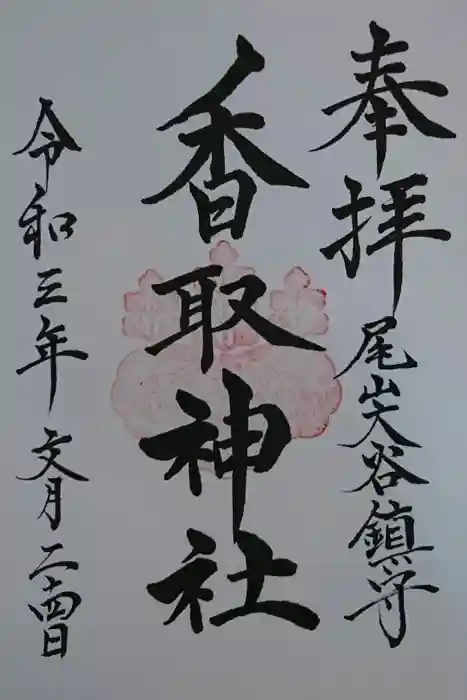 奉拝
尾崎大谷鎮守
香取神社
令和三年文月二十四日